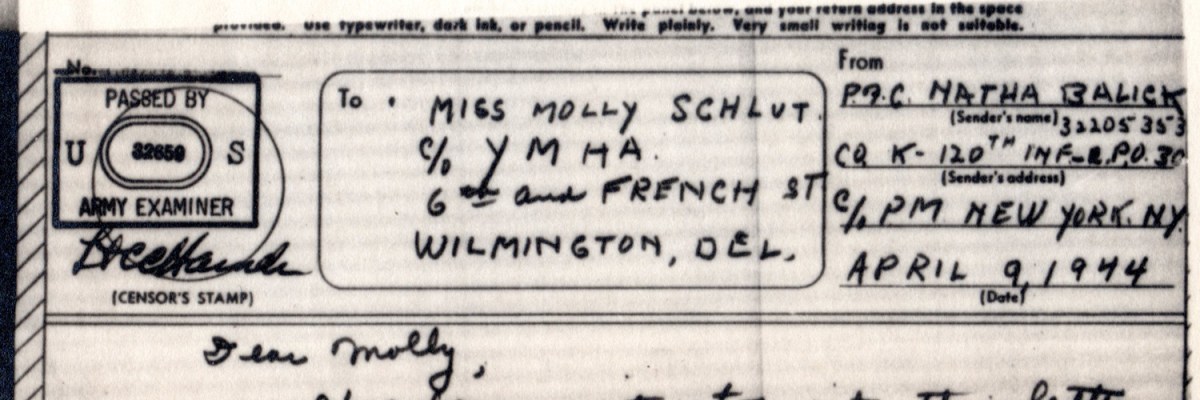 below, and your return address in the space
provided. Use typewriter, dark ink, or pencil. Write plainly. Very small writing is not suitable.
No.
PASSED BY
U 32659 S
ARMY EXAMINER
(CENSOR'S STAMP)
To
MISS MOLLY SCHLUT.
c/o Y M H A.
6th and FRENCH ST
WILMINGTON, DEL.
From
P.F.C. NATHA BALICK
(Sender's name) 32205353
CO. K- 120TH INF- A.P.O. 30
(Sender's address)
c/o PM NEW YORK. NY.
APRIL 9, 1944
(Date)
Dear Molly,